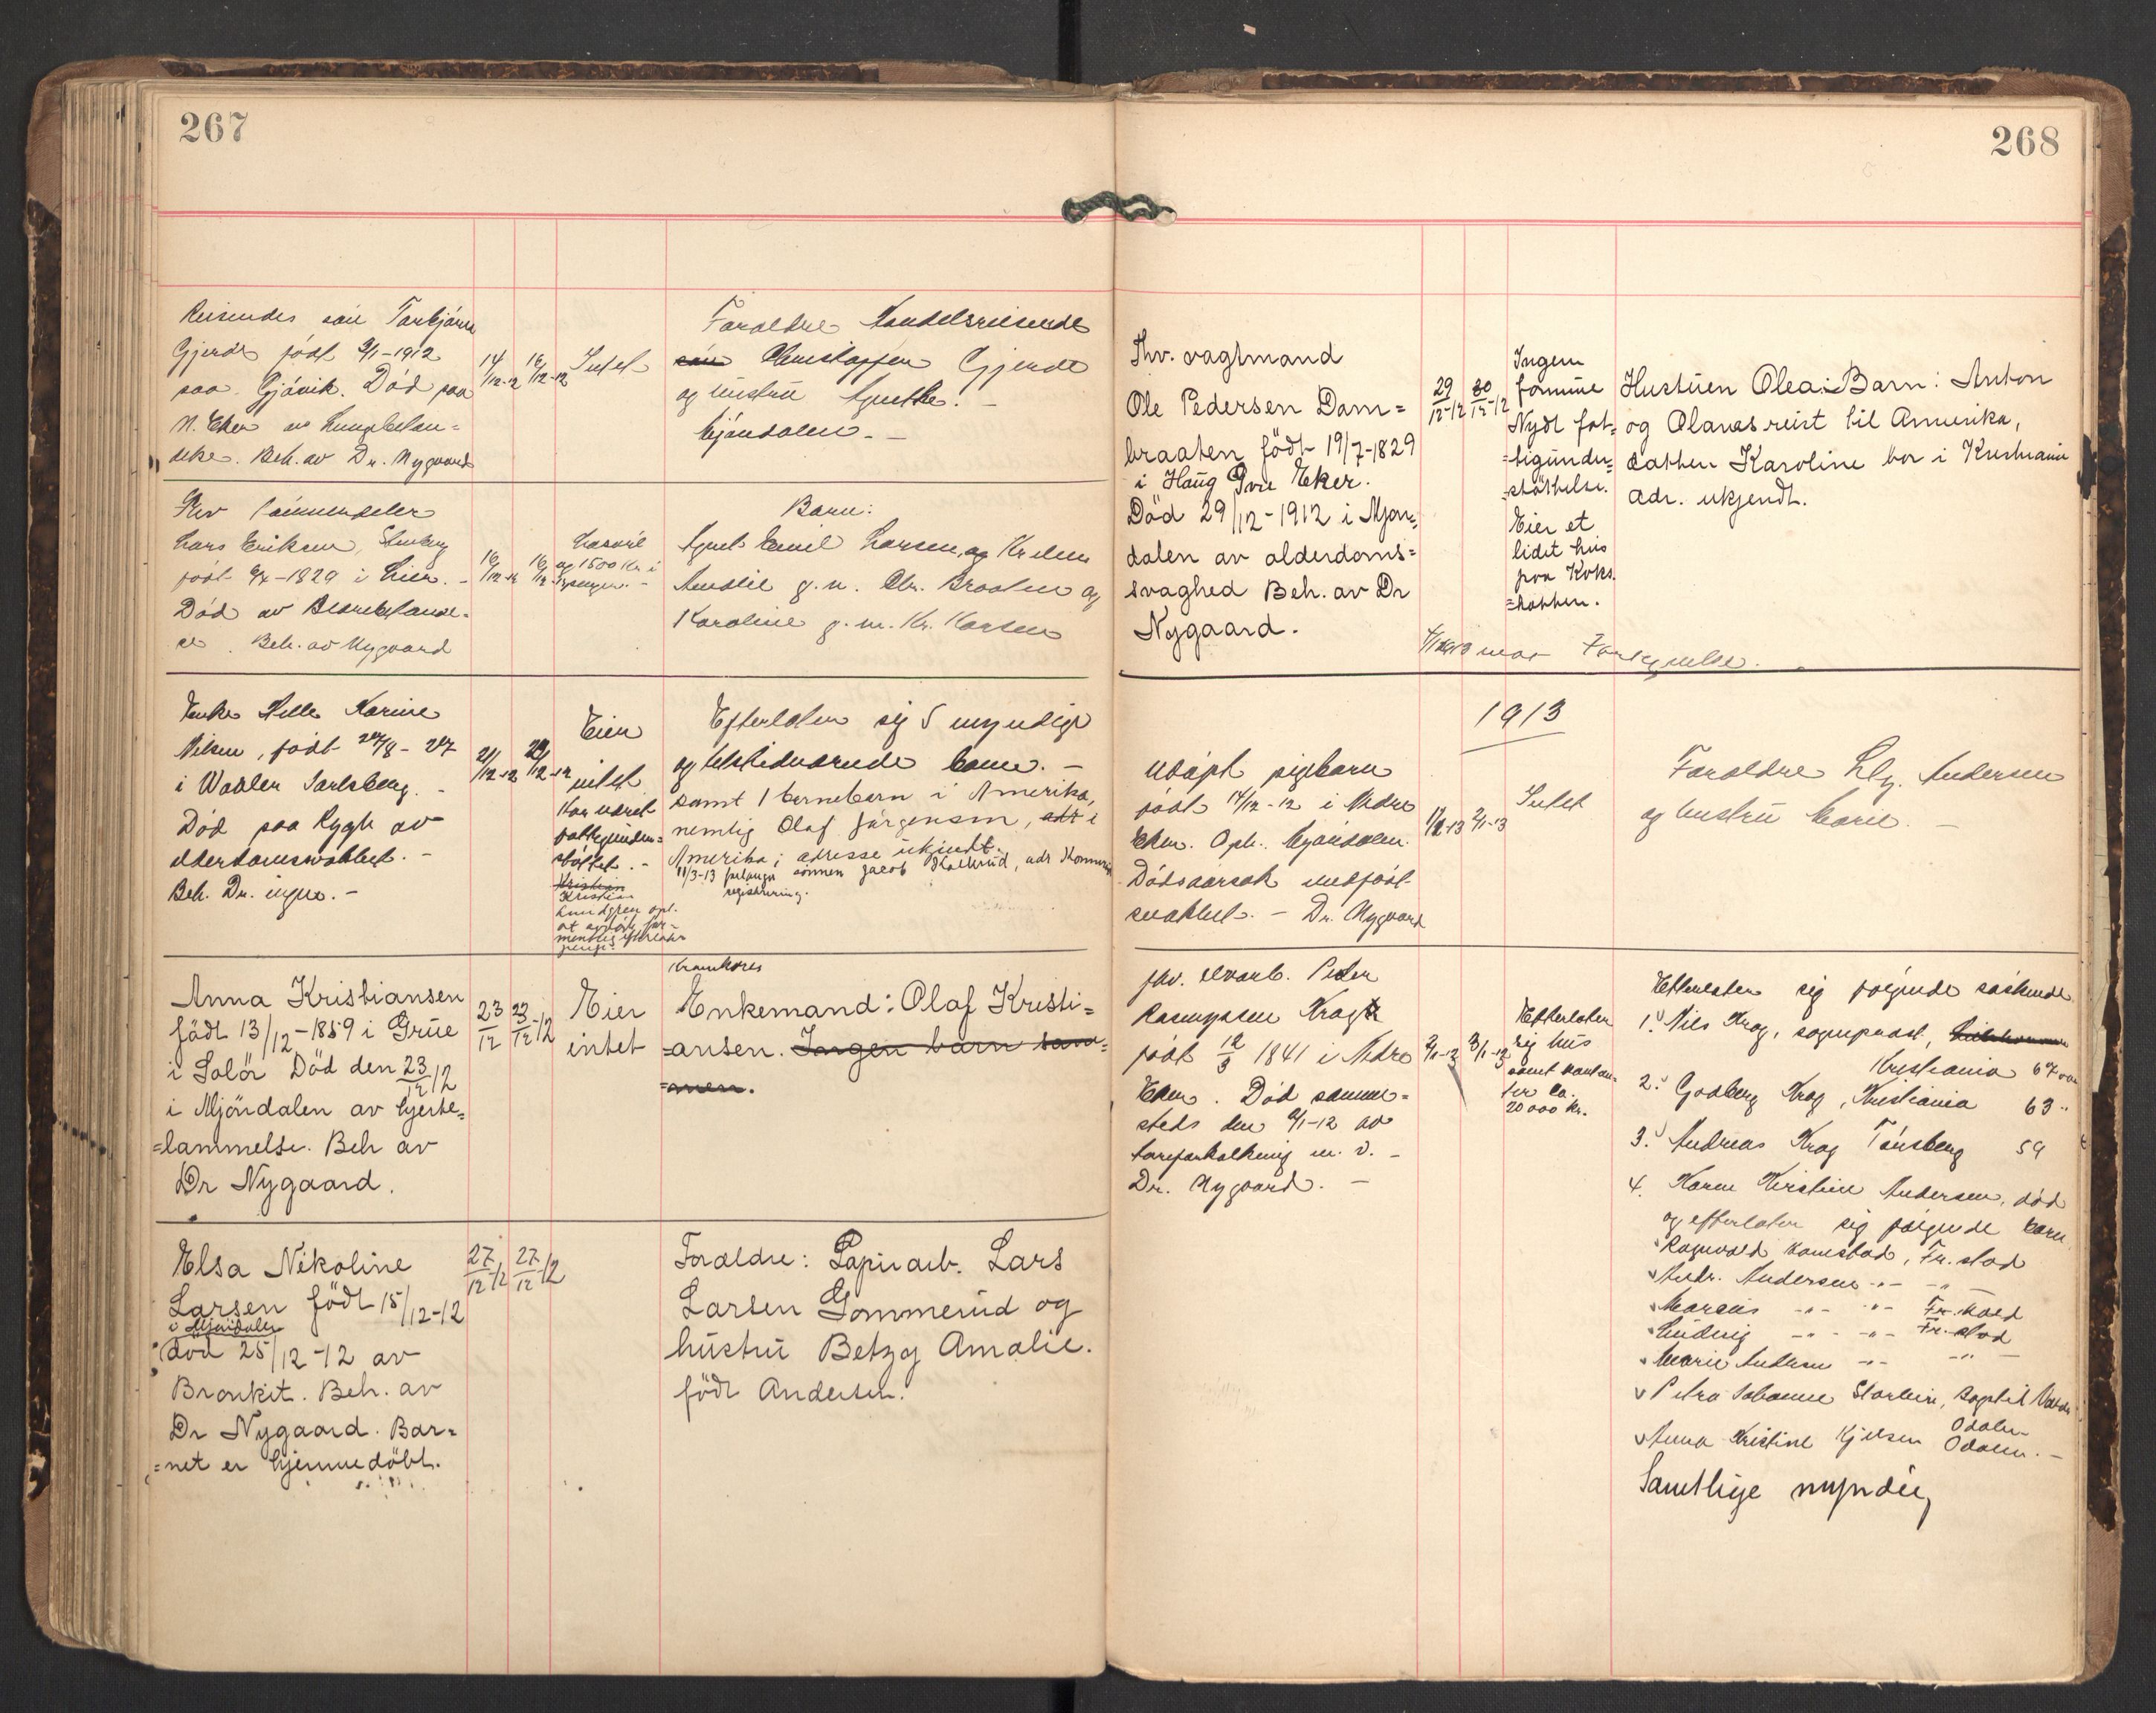 267
Reisendes sön Torbjörn
Gjerde född 9/1-1912
paa Gjövik. Död paa
N. Eker av Lungebetæn-
delse. Beh. av Dr. Nygaard
14/12-12
16/12-12
Intet
Forældre Handelsreisende
Christoffer Gjerde
og hustru Agnethe. -
Mjöndalen. -
Fhv
Lars Eriksen, Stenberg
födt 1829 i Lier. -
Död av Blærebetændel-
se. Beh. av Nygaard
16/12-12
16/12
Lösöre
og 1500 Kr. i
penger. -
Barn:
Agnes Emil Larsen, og
Amalie g. m. Chr. Braaten og
Karoline g. m. Kr. Karlsen
Enke Helle Karine
Nilsen, födt 27/8-27
i Waaler Jarlsberg. -
Död paa Rygh av
alderdomssvakhet. -
Beh. Dr. ingen. -
21/12-12
12-12
Eier
intet
Har været
fattigunder-
støttet. -
Kristian
Kristian
Lundgren opl.
at avdöde for-
mentlig efterlater
penge
Efterlater sig 5 myndige
og tilstedeværende barn. -
samt 1 barnebarn i Amerika,
nemlig Olaf Jörgensen, att i
Amerika; adresse ukjendt.
11/3-13 forlanger sönnen Jacob Kolkrud, adr Konnerud
registrering.
Anna Kristiansen
födt 13/12-1859 i Grue
i Solör Död den 23/12 12
i Mjöndalen av hjerte-
=lammelse. Beh av
Dr Nygaard.
23/12
23/12-12
Eier
intet
Enkemand: Olaf Kristi=
=ansen. Ingen barn sam=
=men.
Elsa Nikoline
Larsen födt 15/12-12
i Mjöndalen
död 25/12-12 av
Bronkit. Beh. av
Dr Nygaard. Bar=
=net er hjemmedöbt.
27/12 12
27/12 12
Forældre: Papirarb. Lars
Larsen Gommerud og
hustru Betzy Amalie.
födt Andersen.
268
Fhv. vagtmand
Ole Pedersen Dam=
braaten födt 19/7-1829
i Haug Övre Eker.
Död 29/12-1912 i Mjön=
dalen av alderdoms=
svaghed Beh. av Dr
Nygaard.
29/12-12
30/12-12
Ingen
formue
Nydt fat=
=tigunder=
=støttelse.
Eier et
lidet hus
paa Koks
=bakken.
Hustruen Olea. Barn: Anton
og Olavas reist til Amerika,
datter Karoline bor i Kristiania
adr. ukjendt.
1913
Udöpt pigebarn
födt 14/12-12 i Nedre
Eker. Oph. Mjöndalen.
Dödsaarsak medfödt
svakhet. - Dr. Nygaard
2/1-13
Intet
Forældre Andersen
og hustru Marie. -
fhv. elvarb. Peder
Rasmussen Krog
födt 12/3 1841 i Nedre
Eker. Död samme=
steds den 2/1-12 av
aareforkalkning m. v. -
Dr. Nygaard. -
2/1-13
3/1-13
Efterlater
sig hus
samt kontan-
ter ca.
20 000 kr.
Efterlater sig fölgende söskende
1. Nils Krog, sogneprest,
Kristiania 67 aar
2. Godberg Krog, Kristiania 63 "
3. Andreas Krog Tönsberg 59
4. Karen Kirstine Andersen, död
og efterlater sig fölgende barn
Ragnvald Komstad, Fr. stad
Andr. Andersen -"- -"-
Marius -"- -"- Fr. stad
Ludvig -"- -"- Fr. stad
Marie Andersen -"- -"-
Petra Johanne
Odalen
Anna Kristine Kjelsen Odalen. -
Samtlige myndig